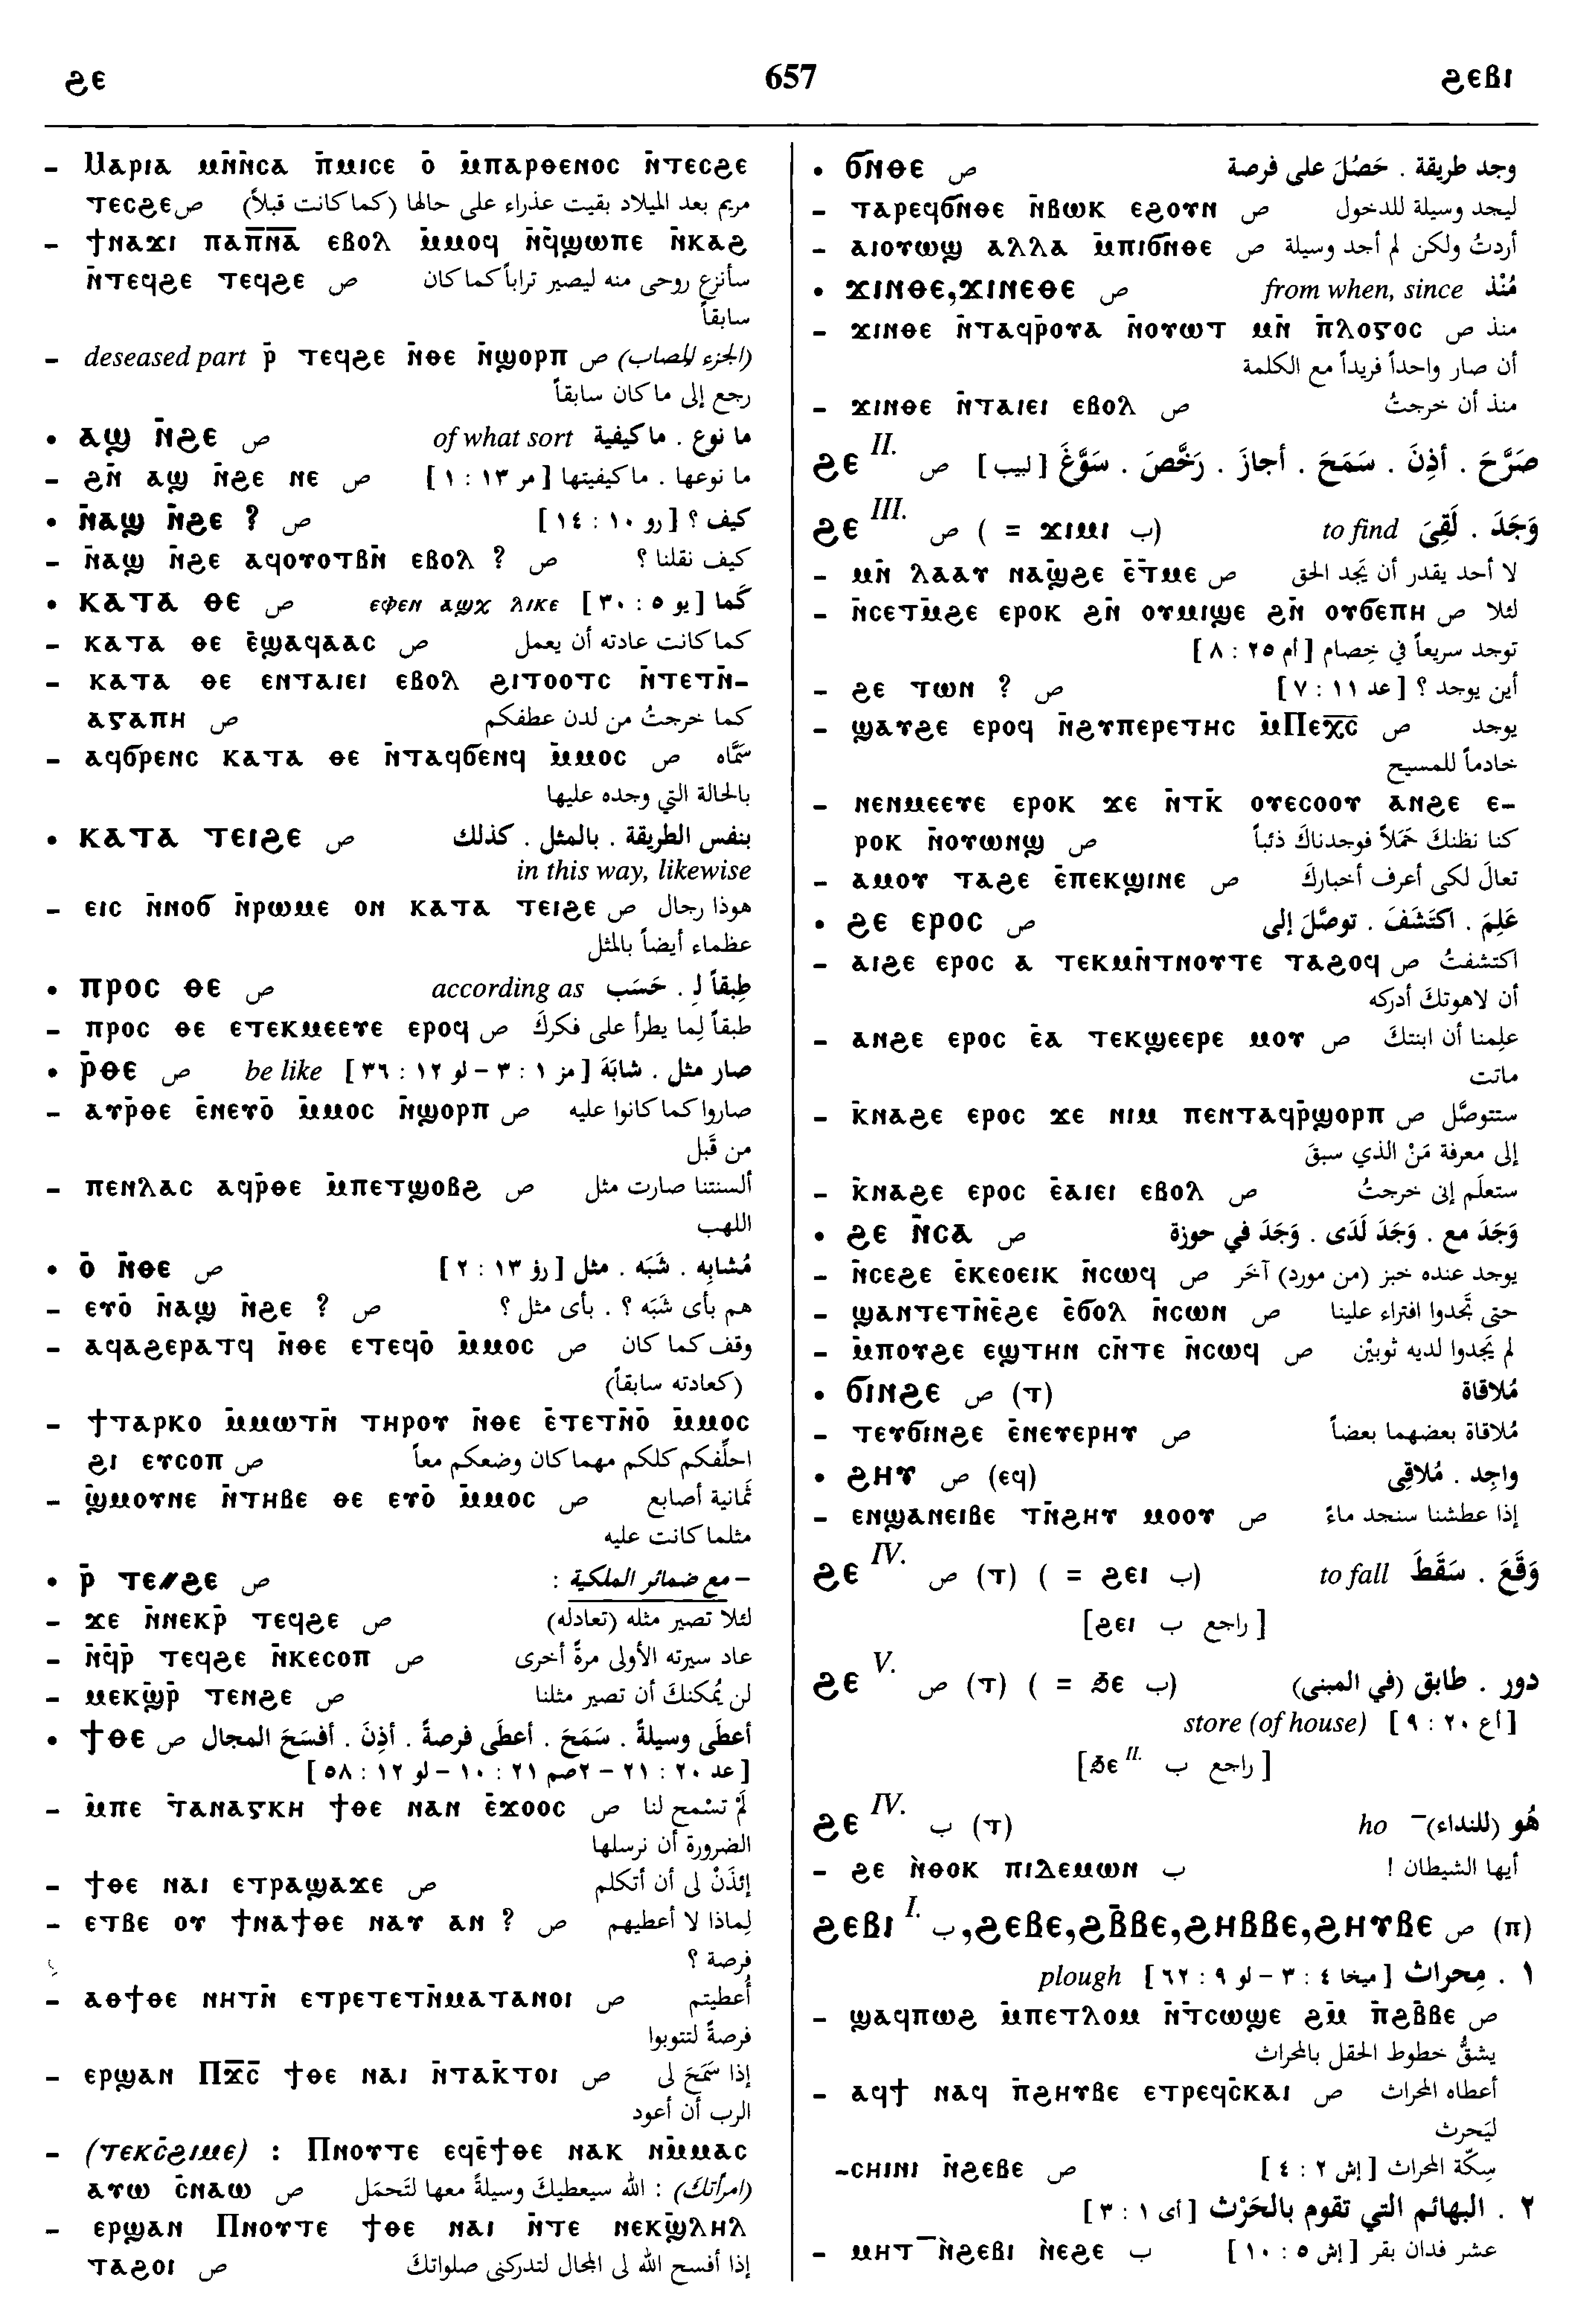 ϩⲉ 657 ϩⲉⲃⲓ
– Ⲙⲁⲣⲓⲁ ⲙⲛ̄ⲛ̄ⲥⲁ ⲡ̄ⲙⲓⲥⲉ ⲟ̄ ⲙ̄ⲡⲁⲣⲑⲉⲛⲟⲥ ⲛ̄ⲧⲉⲥϩⲉ
ⲧⲉⲥϩⲉ ص مريم بعد الميلاد بقيت عذراء على حالها (كما كانت قبلاً)
– ϯⲛⲁϫⲓ ⲡⲁⲡ̅ⲛ̅ⲁ̅ ⲉⲃⲟⲗ ⲙ̄ⲙⲟϥ ⲛ̄ϥ̄ϣⲱⲡⲉ ⲛ̄ⲕⲁϩ
ⲛ̄ⲧⲉϥϩⲉ ⲧⲉϥϩⲉ ص سأنزع روحى منه ليصير تراباً كما كان
سابقاً
– deseased part ⲣ̄ ⲧⲉϥϩⲉ ⲛ̄ⲑⲉ ⲛ̄ϣⲟⲣⲡ ص (الجزء المصاب)
رجع إلى ما كان سابقاً
• ⲁϣ ⲛ̄ϩⲉ ص of what sort ما نوع . ما كيفية
– ϩⲛ̄ ⲁϣ ⲛ̄ϩⲉ ⲛⲉ ص ما نوعها . ما كيفيتها [ مر ١٣ : ١ ]
• ⲛ̄ⲁϣ ⲛ̄ϩⲉ ? ص كيف ؟ [ رو ١٠ : ١٤ ]
– ⲛ̄ⲁϣ ⲛ̄ϩⲉ ⲁϥⲟⲩⲟⲧⲃⲛ̄ ⲉⲃⲟⲗ ? ص كيف نقلنا ؟
• ⲕⲁⲧⲁ ⲑⲉ ص ⲉⲫⲉⲛ ⲁϣϫ ⲗⲓⲕⲉ كَما [ يو ٥ : ٣٠ ]
– ⲕⲁⲧⲁ ⲑⲉ ⲉ̄ϣⲁϥⲁⲁⲥ ص كما كانت عادته أن يعمل
– ⲕⲁⲧⲁ ⲑⲉ ⲉⲛⲧⲁⲓⲉⲓ ⲉⲃⲟⲗ ϩⲓⲧⲟⲟⲧⲥ ⲛ̄ⲧⲉⲧⲛ̄-
ⲁⲅⲁⲡⲏ ص كما خرجتُ من لدن عطفكم
– ⲁϥϭⲣⲉⲛⲥ ⲕⲁⲧⲁ ⲑⲉ ⲛ̄ⲧⲁϥϭⲉⲛϥ ⲙ̄ⲙⲟⲥ ص سمَّاه
بالحالة التي وجده عليها
• ⲕⲁⲧⲁ ⲧⲉⲓϩⲉ ص بنفس الطريقة . بالمثل . كذلك
in this way, likewise
– ⲉⲓⲥ ⲛ̄ⲛⲟϭ ⲛ̄ⲣⲱⲙⲉ ⲟⲛ ⲕⲁⲧⲁ ⲧⲉⲓϩⲉ ص هوذا رجال
عظماء أيضاً بالمثل
• ⲡⲣⲟⲥ ⲑⲉ ص according as طِبقاً لِـ . حَسَب
– ⲡⲣⲟⲥ ⲑⲉ ⲉⲧⲉⲕⲙⲉⲉⲩⲉ ⲉⲣⲟϥ ص طبقاً لِما يطرأ على فكركَ
• ⲣ̄ⲑⲉ ص be like صار مثل . شابَهَ [ مز ١ : ٣ – لو ١٢ : ٣٦ ]
– ⲁⲩⲣ̄ⲑⲉ ⲉ̄ⲛⲉⲩⲟ̄ ⲙ̄ⲙⲟⲥ ⲛ̄ϣⲟⲣⲡ ص صاروا كما كانوا عليه
من قَبل
– ⲡⲉⲛⲗⲁⲥ ⲁϥⲣ̄ⲑⲉ ⲙ̄ⲡⲉⲧϣⲟⲃϩ ص ألسنتنا صارت مثل
اللهب
• ⲟ̄ ⲛ̄ⲑⲉ ص مُشابِه . شَبَه . مثل [ رؤ ١٣ : ٢ ]
– ⲉⲩⲟ̄ ⲛ̄ⲁϣ ⲛ̄ϩⲉ ? ص هم بأى شَبَه ؟ . بأى مثل ؟
– ⲁϥⲁϩⲉⲣⲁⲧϥ ⲛ̄ⲑⲉ ⲉⲧⲉϥⲟ̄ ⲙ̄ⲙⲟⲥ ص وقف كما كان
(كعادته سابقاً)
– ϯⲧⲁⲣⲕⲟ ⲙ̄ⲙⲱⲧⲛ̄ ⲧⲏⲣⲟⲩ ⲛ̄ⲑⲉ ⲉ̄ⲧⲉⲧⲛ̄ⲟ̄ ⲙ̄ⲙⲟⲥ
ϩⲓ ⲉⲩⲥⲟⲡ ص احلِّفكم كلكم مهما كان وضعكم معاً
– ϣ̄ⲙⲟⲩⲛⲉ ⲛ̄ⲧⲏⲃⲉ ⲑⲉ ⲉⲩⲟ̄ ⲙ̄ⲙⲟⲥ ص ثمانية أصابع
مثلما كانت عليه
• ⲣ̄ ⲧⲉ//ϩⲉ ص – مع ضمائر الملكية :
– ϫⲉ ⲛ̄ⲛⲉⲕⲣ̄ ⲧⲉϥϩⲉ ص لئلا تصير مثله (تعادله)
– ⲛ̄ϥ̄ⲣ̄ ⲧⲉϥϩⲉ ⲛ̄ⲕⲉⲥⲟⲡ ص عاد سيرته الأولى مرةً أخرى
– ⲙⲉⲕϣ̄ⲣ̄ ⲧⲉⲛϩⲉ ص لن يُمكنكَ أن تصير مثلنا
• ϯⲑⲉ ص أعطَى وسيلةً . سَمَحَ . أعطَى فرصةً . أذِنَ . أفسَحَ المجال
[ عد ٢٠ : ٢١ – ٢صم ٢١ : ١٠ – لو ١٢ : ٥٨ ]
– ⲙ̄ⲡⲉ ⲧ̄ⲁⲛⲁⲅⲕⲏ ϯⲑⲉ ⲛⲁⲛ ⲉ̄ϫⲟⲟⲥ ص لَمْ تسْمح لنا
الضرورة أن نرسلها
– ϯⲑⲉ ⲛⲁⲓ ⲉⲧⲣⲁϣⲁϫⲉ ص إئذَنْ لى أن أتكلم
– ⲉⲧⲃⲉ ⲟⲩ ϯⲛⲁϯⲑⲉ ⲛⲁⲩ ⲁⲛ ? ص لِماذا لا أعطيهم
فرصة ؟
– ⲁⲑϯⲑⲉ ⲛⲏⲧⲛ̄ ⲉⲧⲣⲉⲧⲉⲧⲛ̄ⲙⲁⲧⲁⲛⲟⲓ ص أُعطيتم
فرصةً لتتوبوا
– ⲉⲣϣⲁⲛ Ⲡⲭ̅ⲥ̅ ϯⲑⲉ ⲛⲁⲓ ⲛ̄ⲧⲁⲕ̄ⲧⲟⲓ ص إذا سَمَحَ لى
الرب أن أعود
– (ⲧⲉⲕⲥ̄ϩⲓⲙⲉ) : Ⲡⲛⲟⲩⲧⲉ ⲉϥⲉ̄ϯⲑⲉ ⲛⲁⲕ ⲛⲙ̄ⲙⲁⲥ
ⲁⲩⲱ ⲥ̄ⲛⲁⲱ ص (امرأتكَ) : الله سيعطيكَ وسيلةً معها لتَحمَل
– ⲉⲣϣⲁⲛ Ⲡⲛⲟⲩⲧⲉ ϯⲑⲉ ⲛⲁⲓ ⲛ̄ⲧⲉ ⲛⲉⲕϣ̄ⲗⲏⲗ
ⲧⲁϩⲟⲓ ص إذا أفسح الله لى المجال لتدركنى صلواتكَ
• ϭⲛ̄ⲑⲉ ص وجد طريقة . حَصُلَ على فرصة
– ⲧⲁⲣⲉϥϭⲛ̄ⲑⲉ ⲛ̄ⲃⲱⲕ ⲉϩⲟⲩⲛ ص ليجد وسيلة للدخول
– ⲁⲓⲟⲩⲱϣ ⲁⲗⲗⲁ ⲙ̄ⲡⲓϭⲛ̄ⲑⲉ ص أردتُ ولكن لم أجد وسيلة
• ϫⲓⲛⲑⲉ,ϫⲓⲛⲉⲑⲉ ص from when, since مُنْذ
– ϫⲓⲛⲑⲉ ⲛ̄ⲧⲁϥⲣ̄ⲟⲩⲁ ⲛ̄ⲟⲩⲱⲧ ⲙⲛ̄ ⲡ̄ⲗⲟⲅⲟⲥ ص منذ
أن صار واحداً فريداً مع الكلمة
– ϫⲓⲛⲑⲉ ⲛ̄ⲧⲁⲓⲉⲓ ⲉⲃⲟⲗ ص منذ أن خرجتُ
ϩⲉ II. ص صَرَّحَ . أذِنَ . سَمَحَ . أجازَ . رَخَّصَ . سَوَّغَ [ لبيب ]
ϩⲉ III. ص ( = ϫⲓⲙⲓ ب) to find وَجَدَ . لَقِىَ
– ⲙⲛ̄ ⲗⲁⲁⲩ ⲛⲁϣ̄ϩⲉ ⲉ̄ⲧⲙⲉ ص لا أحد يقدر أن يَجد الحق
– ⲛ̄ⲥⲉⲧⲙ̄ϩⲉ ⲉⲣⲟⲕ ϩⲛ̄ ⲟⲩⲙⲓϣⲉ ϩⲛ̄ ⲟⲩϭⲉⲡⲏ ص لئلا
توجد سريعاً في خِصام [ أم ٢٥ : ٨ ]
– ϩⲉ ⲧⲱⲛ ? ص أين يوجد ؟ [ عد ١١ : ٧ ]
– ϣⲁⲩϩⲉ ⲉⲣⲟϥ ⲛ̄ϩⲩⲡⲉⲣⲉⲧⲏⲥ ⲙ̄Ⲡⲉⲭ̅ⲥ̅ ص يوجد
خادماً للمسيح
– ⲛⲉⲛⲙⲉⲉⲩⲉ ⲉⲣⲟⲕ ϫⲉ ⲛ̄ⲧⲕ̄ ⲟⲩⲉⲥⲟⲟⲩ ⲁⲛϩⲉ ⲉ-
ⲣⲟⲕ ⲛ̄ⲟⲩⲱⲛϣ ص كنا نظنكَ حَمَلاً فوجدناكَ ذئباً
– ⲁⲙⲟⲩ ⲧⲁϩⲉ ⲉ̄ⲡⲉⲕϣⲓⲛⲉ ص تعالَ لكى أعرف أخباركَ
• ϩⲉ ⲉⲣⲟⲥ ص عَلِمَ . اكتَشَفَ . توصَّلَ إلى
– ⲁⲓϩⲉ ⲉⲣⲟⲥ ⲁ ⲧⲉⲕⲙⲛ̄ⲧⲛⲟⲩⲧⲉ ⲧⲁϩⲟϥ ص اكتشفتُ
أن لاهوتكَ أدركه
– ⲁⲛϩⲉ ⲉⲣⲟⲥ ⲉ̄ⲁ ⲧⲉⲕϣⲉⲉⲣⲉ ⲙⲟⲩ ص علِمنا أن ابنتكَ
ماتت
– ⲕ̄ⲛⲁϩⲉ ⲉⲣⲟⲥ ϫⲉ ⲛⲓⲙ ⲡⲉⲛⲧⲁϥⲣ̄ϣⲟⲣⲡ ص ستتوصَّل
إلى معرفة مَنْ الذي سبقَ
– ⲕ̄ⲛⲁϩⲉ ⲉⲣⲟⲥ ⲉ̄ⲁⲓⲉⲓ ⲉⲃⲟⲗ ص ستعلَم إنى خرجتُ
• ϩⲉ ⲛ̄ⲥⲁ ص وَجَدَ مع . وَجَدَ لَدَى . وَجَدَ في حوزة
– ⲛ̄ⲥⲉϩⲉ ⲉ̄ⲕⲉⲟⲉⲓⲕ ⲛ̄ⲥⲱϥ ص يوجد عنده خبز (من مورد) آخَر
– ϣⲁⲛⲧⲉⲧⲛ̄ⲉ̄ϩⲉ ⲉ̄ϭⲟⲗ ⲛ̄ⲥⲱⲛ ص حتى تَجدوا افتراء علينا
– ⲙ̄ⲡⲟⲩϩⲉ ⲉϣⲧⲏⲛ ⲥⲛ̄ⲧⲉ ⲛ̄ⲥⲱϥ ص لم يَجدوا لديه ثوبيْن
• ϭⲓⲛϩⲉ ص (ⲧ) مُلاقاة
– ⲧⲉⲩϭⲓⲛϩⲉ ⲉ̄ⲛⲉⲩⲉⲣⲏⲩ ص مُلاقاة بعضهما بعضاً
• ϩⲏⲩ ص (ⲉϥ) واجِد . مُلاقِى
– ⲉⲛϣⲁⲛⲉⲓⲃⲉ ⲧⲛ̄ϩⲏⲩ ⲙⲟⲟⲩ ص إذا عطشنا سنجد ماءً
ϩⲉ IV. ص (ⲧ) ( = ϩⲉⲓ ب) to fall وَقَعَ . سَقَطَ
[ϩⲉⲓ راجع ب ]
ϩⲉ V. ص (ⲧ) ( = ϧⲉ ب) دور . طابق (في المبنى)
store (of house) [ أع ٢٠ : ٩ ]
[ϧⲉ II. راجع ب ]
ϩⲉ IV. ب (ⲧ) ho هُو (للنداء)–
– ϩⲉ ⲛ̀ⲑⲟⲕ ⲡⲓⲇⲉⲙⲱⲛ ب أيها الشيطان !
ϩⲉⲃⲓ I. ب,ϩⲉⲃⲉ,ϩⲃ̄ⲃⲉ,ϩⲏⲃⲃⲉ,ϩⲏⲩⲃⲉ ص (ⲡ)
١ . مِحراث [ ميخا ٤ : ٣ – لو ٩ : ٦٢ ] plough
– ϣⲁϥⲡⲱϩ ⲙ̄ⲡⲉⲧⲗⲟⲙ ⲛ̄ⲧ̄ⲥⲱϣⲉ ϩⲙ̄ ⲡ̄ϩⲃ̄ⲃⲉ ص
يشقُّ خطوط الحقل بالمحراث
– ⲁϥϯ ⲛⲁϥ ⲡ̄ϩⲏⲩⲃⲉ ⲉⲧⲣⲉϥⲥ̄ⲕⲁⲓ ص أعطاه المحراث
ليَحرث
-ⲥⲏⲓⲛⲓ ⲛ̄ϩⲉⲃⲉ ص سِكّة المحراث [ إش ٢ : ٤ ]
٢ . البهائم التي تقوم بالحَرْث [ أى ١ : ٣ ]
– ⲙⲏⲧ¯ⲛ̀ϩⲉⲃⲓ ⲛ̀ⲉϩⲉ ب عشر فدان بقر [ إش ٥ : ١٠ ]